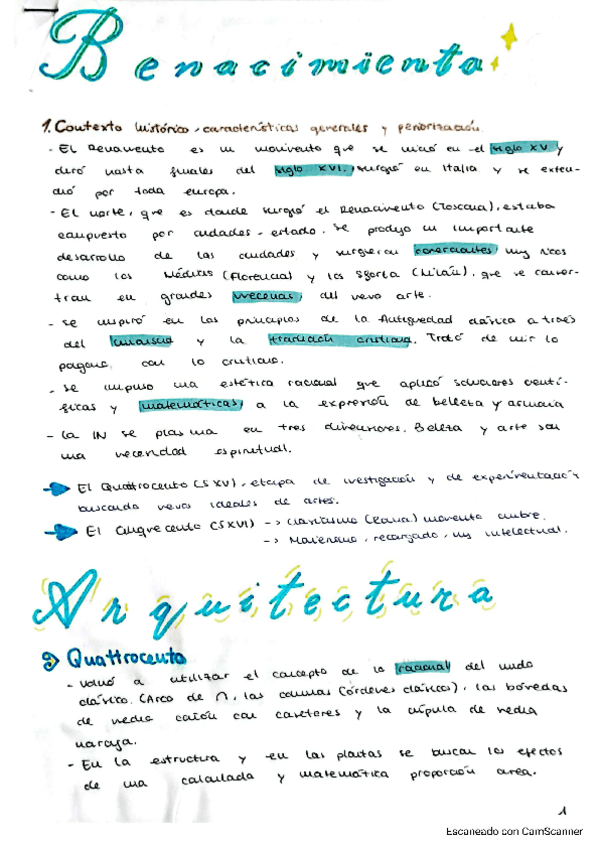 Renacimiento
1. Contexto histórico, características generales y periorización.
- El Renacimento es un movimiento que se inició en el siglo XV y
duró hasta finales del siglo XVI, surgió en Italia y se exten-
dió por toda europa.
- El norte, que es donde surgió el Renacimento (Toscana), estaba
compuesto por ciudades-estado. Se produjo un importante
desarrollo de las ciudades y surgieron comerciantes muy ricos
como los Médicis (Florencia) y los Sforza (Milán), que se conver-
tían en grandes mecenas, del nuevo arte.
- Se inspiró en los principios de la Antigüedad clásica a través
del humanismo y la tradición cristiana. Trató de unir lo
pagano con lo cristiano.
- Se impuso una estética racional que aplicó saberes cientí-
ficos y matemáticas, a la expresión de belleza y armonía
- La IN se plasma en tres dimensiones. Belleza y arte son
una necesidad espiritual.
El Quattrocento (S XV), etapa de investigación y de experimentación
buscando nuevos ideales de artes.
El Cinquecento (S XVI) -> Clasicismo (Roma) momento cumbre.
-> Manierismo, recargado, muy intelectual.
Arquitectura
Quattrocento
- Volvió a utilizar el concepto de lo racional del mundo
clásico. (Arco de ∩, las columnas (órdenes clásicos), las bóvedas
de media cañón con casetones y la cúpula de media
naranja.
- En la estructura y en las plantas se buscan los efectos
de una calculada y matemática proporción aurea.
1
Escaneado con CamScanner